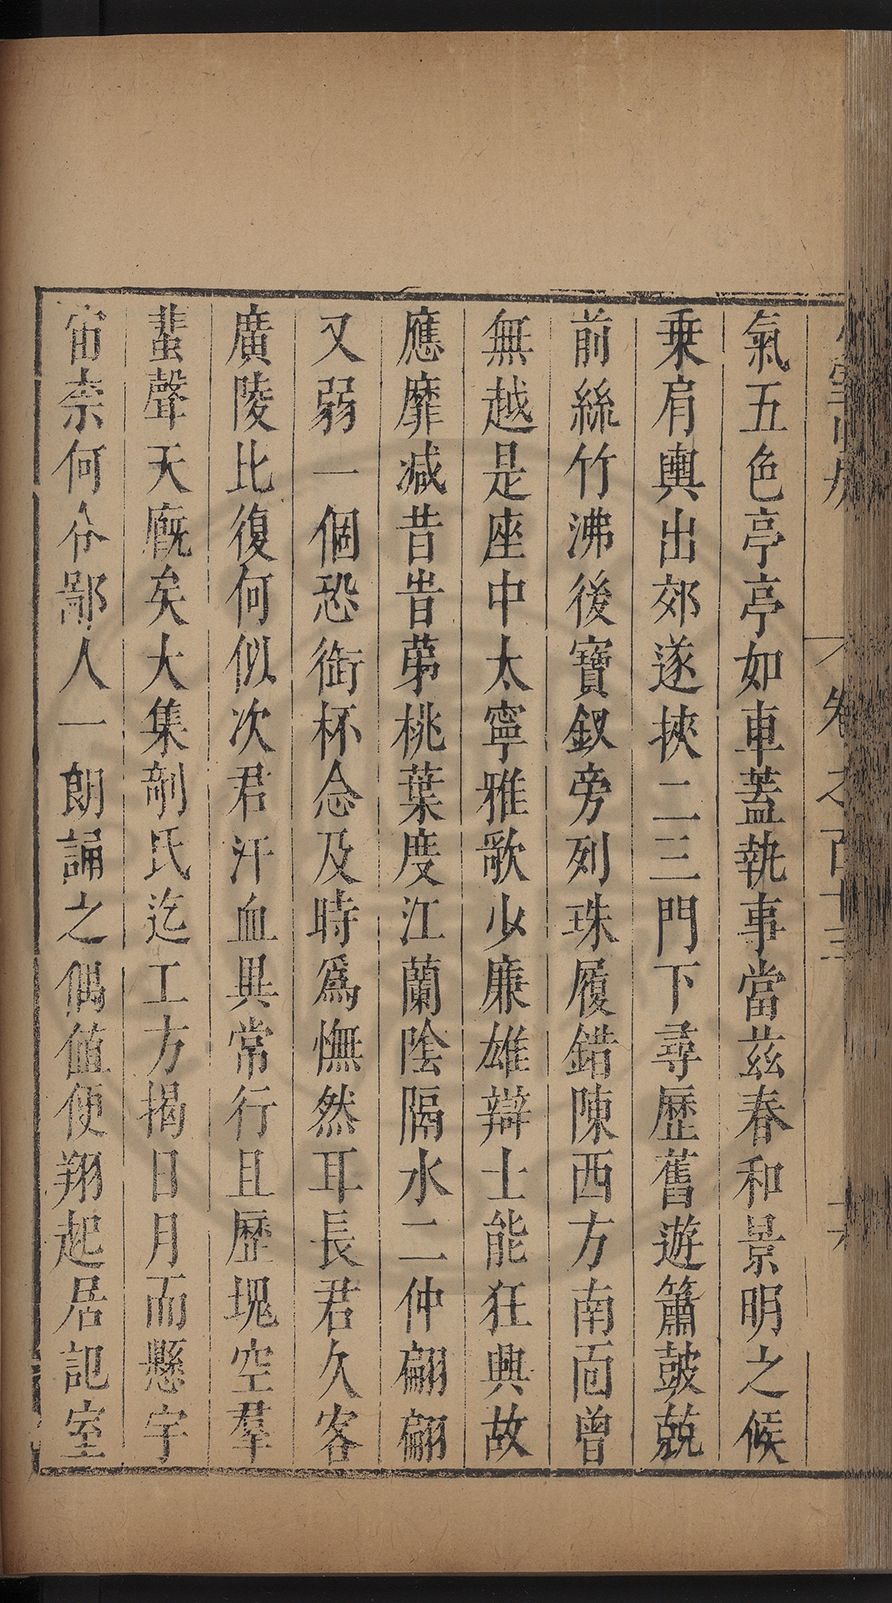 卷之百十三
氣五色亭亭如車蓋執事當茲春和景明之候
乗肩輿出郊遂挾二三門下尋歷舊遊簫鼓兢
前絲竹沸後寶釵旁列珠履錯陳西方南面曾
無越是座中太寧雅歌少廉雄辯士能狂興故
應靡减昔昔第桃葉度江蘭陰隔水二仲翩翩
又弱一個恐銜杯念及時為憮然耳長君久客
廣陵比復何似次君汗血異常行且歷塊空羣
蜚聲天廐矣大集剞氏迄工方揭日月而懸宇
宙柰何令鄙人一朗誦之偶値使翔起居記室